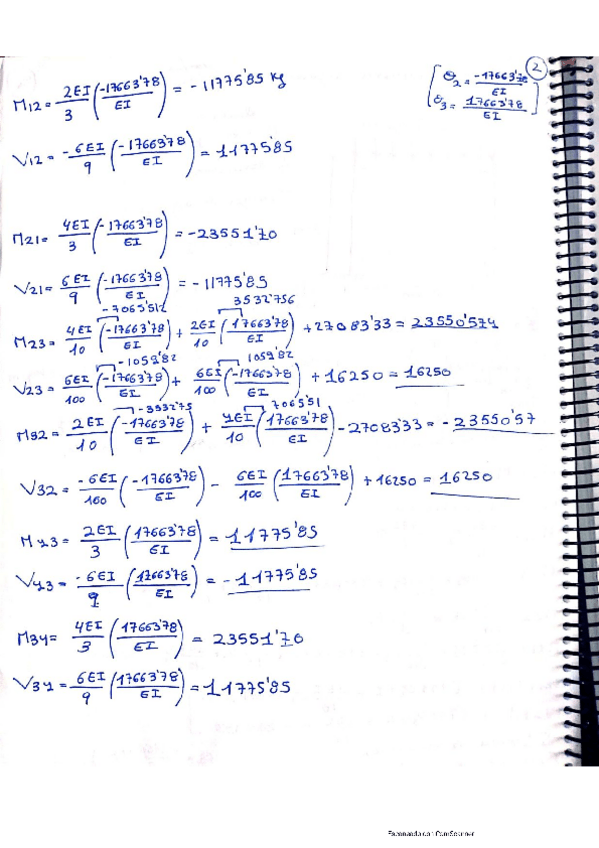 2
[θ2 = -17663'78/EI
θ3 = 17663'78/EI]
M12 = 2EI/3 (-17663'78/EI) = -11775'85 kg
V12 = -6EI/9 (-17663'78/EI) = 11775'85
M21 = 4EI/3 (-17663'78/EI) = -23551'70
V21 = 6EI/9 (-17663'78/EI) = -11775'85
-7065'512 3532'756
M23 = 4EI/10 (-17663'78/EI) + 2EI/10 (17663'78/EI) + 27083'33 = 23550'574
-1059'82 1059'82
V23 = 6EI/100 (-17663'78/EI) + 6EI/100 (-17663'78/EI) + 16250 = 16250
-3532'75 7065'51
M32 = 2EI/10 (-17663'78/EI) + 4EI/10 (17663'78/EI) - 27083'33 = -23550'57
V32 = -6EI/100 (-17663'78/EI) - 6EI/100 (17663'78/EI) + 16250 = 16250
M43 = 2EI/3 (17663'78/EI) = 11775'85
V43 = -6EI/9 (17663'78/EI) = -11775'85
M34 = 4EI/3 (17663'78/EI) = 23551'70
V34 = 6EI/9 (17663'78/EI) = 11775'85
Escaneado con CamScanner